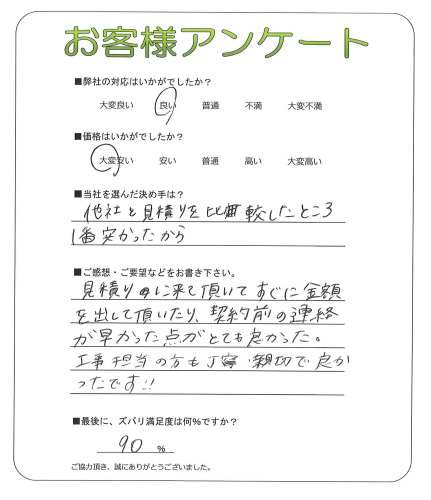 お客様アンケート
■弊社の対応はいかがでしたか？
大変良い　良い　普通　不満　大変不満
■価格はいかがでしたか？
大変安い　安い　普通　高い　大変高い
■当社を選んだ決め手は？
他社と見積りを比較したところ
1番安かったから
■ご感想・ご要望などをお書き下さい。
見積りに来て頂いてすぐに金額
を出して頂いたり、契約前の連絡
が早かった点がとても良かった。
工事担当の方も丁寧・親切で良か
ったです!!
■最後に、ズバリ満足度は何%ですか？
90 %
ご協力頂き、誠にありがとうございました。